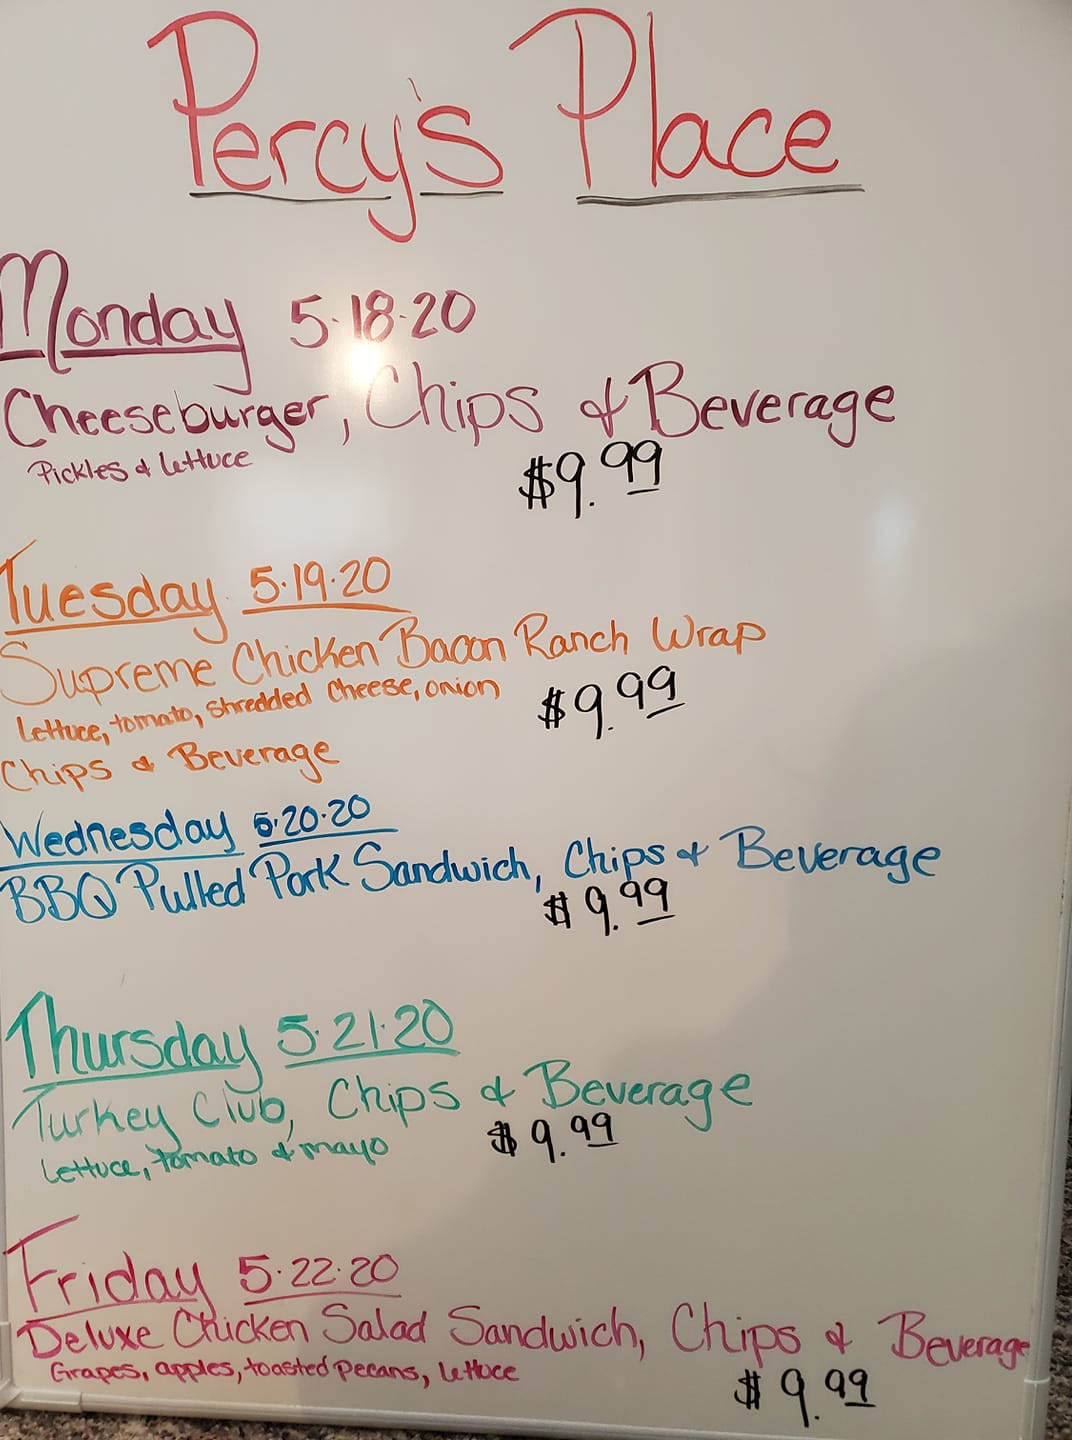 Percy's Place
Monday 5.18.20
Cheeseburger, Chips & Beverage
Pickles & Lettuce
$9.99
Tuesday 5.19.20
Supreme Chicken Bacon Ranch Wrap
Lettuce, tomato, shredded cheese, onion
$9.99
Chips & Beverage
Wednesday 5.20.20
BBQ Pulled Pork Sandwich, Chips & Beverage
$9.99
Thursday 5.21.20
Turkey Club, Chips & Beverage
Lettuce, tomato & mayo
$9.99
Friday 5.22.20
Deluxe Chicken Salad Sandwich, Chips & Beverage
Grapes, apples, toasted pecans, lettuce
$9.99